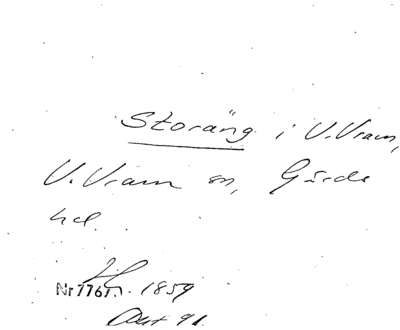 Storäng i V. Vram,
V. Vram sn, Gärds
hd.
Nr 7767. 1859
Akt 91.